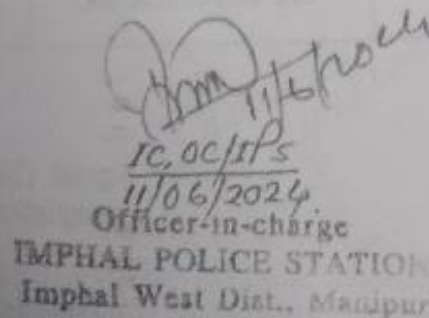 11/6/2024
IC, OC/IPS
11/06/2024.
Officer-in-charge
IMPHAL POLICE STATION
Imphal West Dist., Manipur